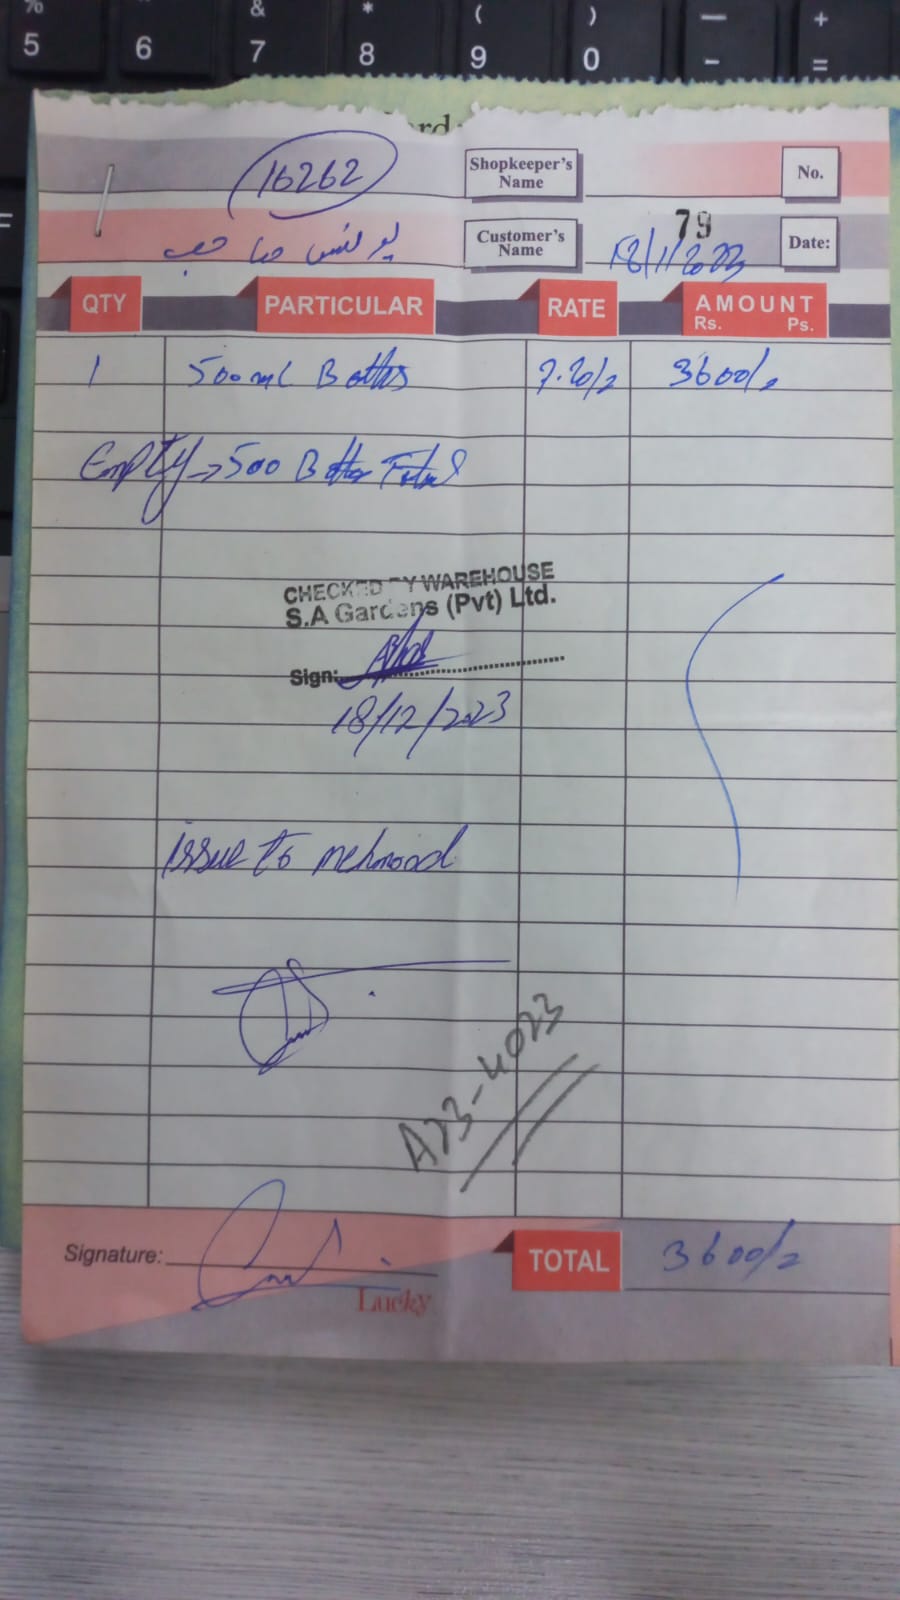 % & * ( ) — +
5 6 7 8 9 0 - =
=
16262 Shopkeeper's Name No.
یونس صاحب Customer's Name 79 Date:
18/1/2023
QTY PARTICULAR RATE AMOUNT
Rs. Ps.
1 500 ml Bottles 7.20/= 3600/=
Empty → 500 Bottles Total
CHECKED BY WAREHOUSE
S.A Gardens (Pvt) Ltd.
Sign:
18/12/2023
issue to mehmood
A23-4023
Signature: TOTAL 3600/=
Lucky